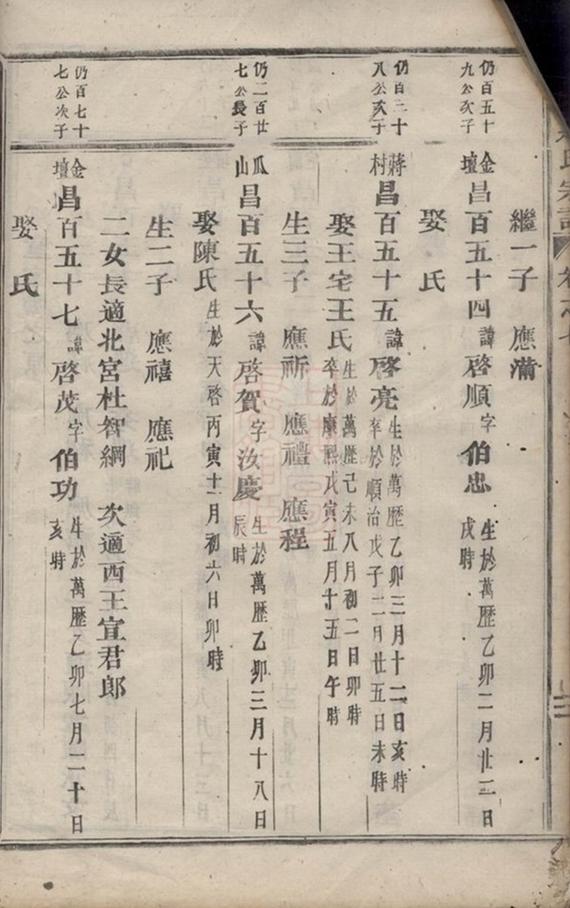 氏宗譜 卷之七
繼一子 應滿
仍百五十
九公次子
金壇昌百五十四諱啓順字伯忠生於萬歷乙卯二月廿二日
戌時
娶 氏
仍百三十
八公次子
蔣村昌百五十五諱啓亮生於萬歷乙卯三月十二日亥時
卒於順治戊子二月廿五日未時
娶王宅王氏生於萬歷己未八月初二日卯時
卒於康熙戊寅五月十五日午時
生三子 應祈 應禮 應程
仍二百廿
七公長子
瓜山昌百五十六諱啓賀字汝慶生於萬歷乙卯三月十八日
辰時
娶陳氏生於天啓丙寅十二月初六日卯時
生二子 應禧 應祀
二女長適北宮杜智綱 次適西王宜君郎
仍百七十
七公次子
金壇昌百五十七諱啓茂字伯功生於萬歷乙卯七月二十日
亥時
娶 氏